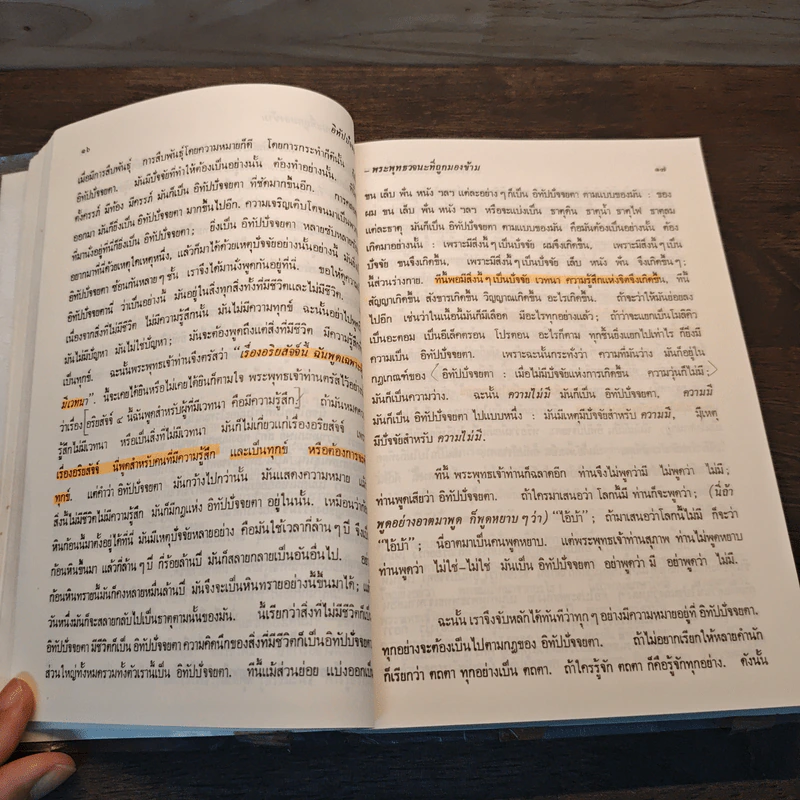 ๑๖
อิทัปปั
เมื่อมีการสืบพันธุ์ การสืบพันธุ์โดยความหมายก็ดี โดยการกระทำก็ดีนั้น
อิทัปปัจจยตา. มันมีปัจจัยที่ทำให้ต้องเป็นอย่างนั้น ต้องทำอย่างนั้น.
ตั้งครรภ์ มีท้อง มีครรภ์ มันก็เป็น อิทัปปัจจยตา ที่ชัดมากขึ้นอีก.
ออกมา มันก็ยิ่งเป็น อิทัปปัจจยตา มากขึ้นไปอีก. ความเจริญเติบโตจนมาเป็น
ที่มานั่งอยู่ที่นี่ก็ยิ่งเป็น อิทัปปัจจยตา; ยิ่งเป็น อิทัปปัจจยตา หลายซับหลายซ้อน
อยากมาที่นี่ด้วยเหตุใดเหตุหนึ่ง, แล้วก็มาได้ด้วยเหตุปัจจัยอย่างนั้นอย่างนี้
อิทัปปัจจยตา ซ้อนกันหลาย ๆ ชั้น เราจึงได้มานั่งพูดกันอยู่ที่นี่. ขอให้ดูความ
อิทัปปัจจยตานี้ ว่าเป็นอย่างนี้ มันอยู่ในสิ่งทุกสิ่งทั้งที่มีชีวิตและไม่มีชีวิต.
เนื่องจากสิ่งที่ไม่มีชีวิต ไม่มีความรู้สึกนั้น มันไม่มีความทุกข์ ฉะนั้นอย่าไปพูด
มันไม่มีปัญหา มันไม่ใช่ปัญหา; มันจะต้องพูดถึงแต่สิ่งที่มีชีวิต มีความรู้สึก
เป็นทุกข์. ฉะนั้นพระพุทธเจ้าท่านจึงตรัสว่า "เรื่องอริยสัจจ์นี้ ฉันพูดเฉพาะ
มีเวทนา". นี้จะเคยได้ยินหรือไม่เคยได้ยินก็ตามใจ พระพุทธเจ้าท่านตรัสไว้อย่าง
ว่าเรื่อง อริยสัจจ์ ๔ นี้ฉันพูดสำหรับผู้ที่มีเวทนา คือมีความรู้สึก. ถ้ามันหมด
รู้สึกไม่มีเวทนา หรือเป็นสิ่งที่ไม่มีเวทนา มันก็ไม่เกี่ยวแก่เรื่องอริยสัจจ์
เรื่องอริยสัจจ์ นี่พูดสำหรับคนที่มีความรู้สึก และเป็นทุกข์ หรือต้องการจะ
ทุกข์. แต่คำว่า อิทัปปัจจยตา มันกว้างไปกว่านั้น มันแสดงความหมาย แม้
สิ่งนี้ไม่มีชีวิตไม่มีความรู้สึก มันก็มีกฎแห่ง อิทัปปัจจยตา อยู่ในนั้น. เหมือนว่าก้อน
หินก้อนนี้มาตั้งอยู่ได้ที่นี่ มันมีเหตุปัจจัยหลายอย่าง คือมันใช้เวลากี่ล้าน ๆ ปี จึงเป็น
ก้อนหินขึ้นมา แล้วกี่ล้าน ๆ ปี กี่ร้อยล้านปี มันก็สลายกลายเป็นอันอื่นไป.
ก้อนหินทรายนี้มันก็คงหลายหมื่นล้านปี มันจึงจะเป็นหินทรายอย่างนี้ขึ้นมาได้;
วันหนึ่งมันก็จะสลายกลับไปเป็นธาตุตามนั้นของมัน. นี้เรียกว่าสิ่งที่ไม่มีชีวิตก็เป็น
อิทัปปัจจยตา มีชีวิตก็เป็น อิทัปปัจจยตา ความคิดนึกของสิ่งที่มีชีวิตก็เป็นอิทัปปัจจยตา
ส่วนใหญ่ทั้งหมดรวมทั้งตัวเรานี้เป็น อิทัปปัจจยตา. ทีนี้แม้ส่วนย่อย แบ่งออกเป็น
– พระพุทธวจนะที่ถูกมองข้าม
๑๗
ขน เล็บ ฟัน หนัง ฯลฯ แต่ละอย่าง ๆ ก็เป็น อิทัปปัจจยตา ตามแบบของมัน : ของ
ผม ขน เล็บ ฟัน หนัง ฯลฯ หรือจะแบ่งเป็น ธาตุดิน ธาตุน้ำ ธาตุไฟ ธาตุลม
แต่ละธาตุ มันก็เป็น อิทัปปัจจยตา ตามแบบของมัน คือมันต้องเป็นอย่างนั้น ต้อง
เกิดมาอย่างนั้น : เพราะมีสิ่งนี้ ๆ เป็นปัจจัย ผมจึงเกิดขึ้น, เพราะมีสิ่งนี้ ๆ เป็น
ปัจจัย ขนจึงเกิดขึ้น, เพราะมีสิ่งนี้ ๆ เป็นปัจจัย เล็บ ฟัน หนัง จึงเกิดขึ้น ๆ ;
นี้ส่วนร่างกาย. ทีนี้พอมีสิ่งนี้ ๆ เป็นปัจจัย เวทนา ความรู้สึกแห่งจิตจึงเกิดขึ้น, ทีนี้
สัญญาเกิดขึ้น สังขารเกิดขึ้น วิญญาณเกิดขึ้น อะไรเกิดขึ้น. ถ้าจะว่าให้มันย่อยลง
ไปอีก เช่นว่าในเนื้อนั้นมันก็มีเลือด มีอะไรทุกอย่างแล้ว; ถ้าว่าจะแยกเป็นโมลิคิว
เป็นอะตอม เป็นอีเล็คตรอน โปรตอน อะไรก็ตาม ทุกชิ้นยิ่งแยกไปเท่าไร ก็ยิ่งมี
ความเป็น อิทัปปัจจยตา. เพราะฉะนั้นกระทั่งว่า ความที่มันว่าง มันก็อยู่ใน
กฎเกณฑ์ของ อิทัปปัจจยตา : เมื่อไม่มีปัจจัยแห่งการเกิดขึ้น ความวุ่นก็ไม่มี;
มันก็เป็นความว่าง. ฉะนั้น ความไม่มี มันก็เป็น อิทัปปัจจยตา. ความมี
มันก็เป็น อิทัปปัจจยตา ไปแบบหนึ่ง : มันมีเหตุมีปัจจัยสำหรับ ความมี, มีเหตุ
มีปัจจัยสำหรับ ความไม่มี.
ทีนี้ พระพุทธเจ้าท่านก็ฉลาดอีก ท่านจึงไม่พูดว่ามี ไม่พูดว่า ไม่มี;
ท่านพูดเสียว่า อิทัปปัจจยตา. ถ้าใครมาเสนอว่า โลกนี้มี ท่านก็จะว่า; (นี่ถ้า
พูดอย่างอาตมาพูด ก็พูดหยาบ ๆ ว่า) "ไอ้บ้า"; ถ้ามาเสนอว่าโลกนี้ไม่มี ก็จะว่า
"ไอ้บ้า"; นี่อาตมาเป็นคนพูดหยาบ. แต่พระพุทธเจ้าท่านสุภาพ ท่านไม่พูดหยาบ
ท่านพูดว่า ไม่ใช่–ไม่ใช่ มันเป็น อิทัปปัจจยตา อย่าพูดว่า มี อย่าพูดว่า ไม่มี.
ฉะนั้น เราจึงจับหลักได้ทันทีว่าทุก ๆ อย่างมีความหมายอยู่ที่ อิทัปปัจจยตา.
ทุกอย่างจะต้องเป็นไปตามกฎของ อิทัปปัจจยตา. ถ้าไม่อยากเรียกให้หลายคำนัก
ก็เรียกว่า ตถตา ทุกอย่างเป็น ตถตา. ถ้าใครรู้จัก ตถตา ก็คือรู้จักทุกอย่าง. ดังนั้น